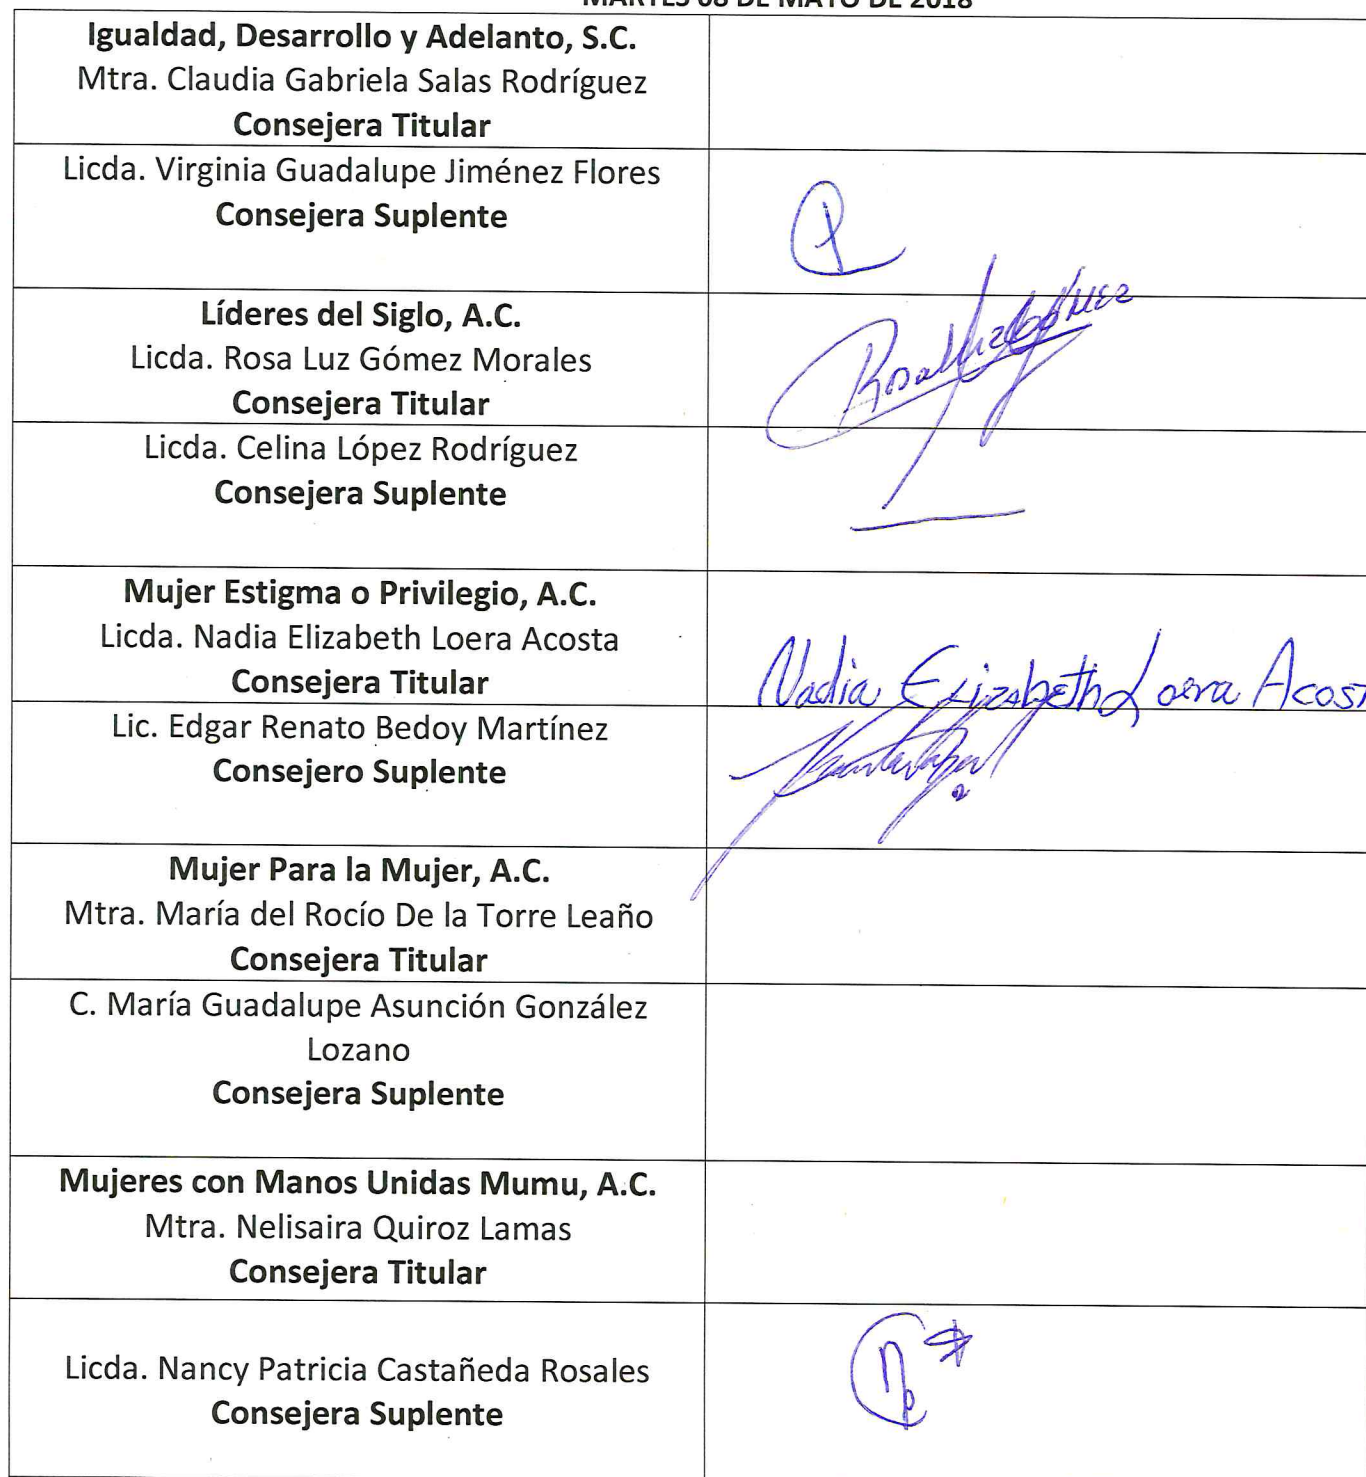 MARTES 08 DE MAYO DE 2018
Igualdad, Desarrollo y Adelanto, S.C.
Mtra. Claudia Gabriela Salas Rodríguez
Consejera Titular
Licda. Virginia Guadalupe Jiménez Flores
Consejera Suplente
Líderes del Siglo, A.C.
Licda. Rosa Luz Gómez Morales
Consejera Titular
Rosa Luz Gómez
Licda. Celina López Rodríguez
Consejera Suplente
Mujer Estigma o Privilegio, A.C.
Licda. Nadia Elizabeth Loera Acosta
Consejera Titular
Nadia Elizabeth Loera Acost
Lic. Edgar Renato Bedoy Martínez
Consejero Suplente
Mujer Para la Mujer, A.C.
Mtra. María del Rocío De la Torre Leaño
Consejera Titular
C. María Guadalupe Asunción González
Lozano
Consejera Suplente
Mujeres con Manos Unidas Mumu, A.C.
Mtra. Nelisaira Quiroz Lamas
Consejera Titular
Licda. Nancy Patricia Castañeda Rosales
Consejera Suplente